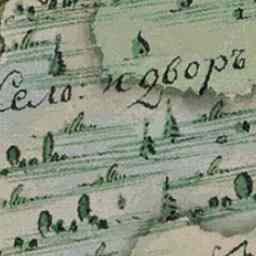 Село: и дворъ